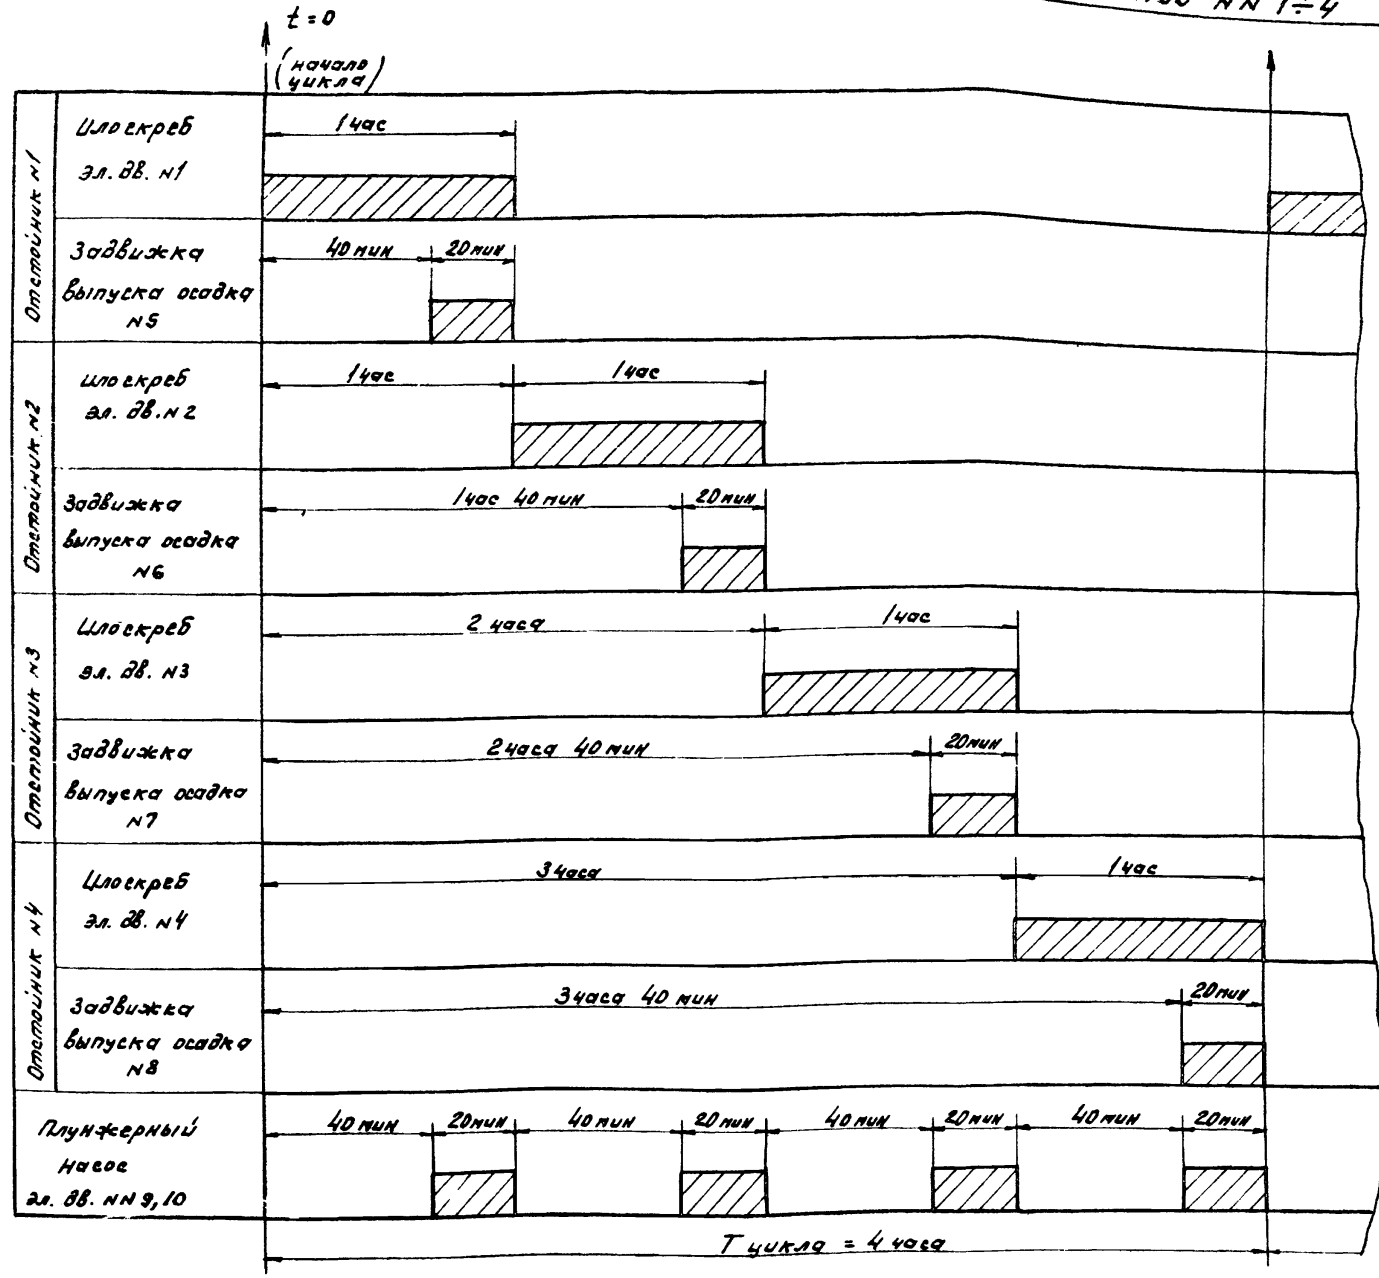 NN 1÷4
t=0
(начало
цикла)
Отстойник N1
Илоскреб
эл. дв. N1
1 час
Задвижка
выпуска осадка
N5
40 мин
20 мин
Отстойник N2
Илоскреб
эл. дв. N2
1 час
1 час
Задвижка
выпуска осадка
N6
1 час 40 мин
20 мин
Отстойник N3
Илоскреб
эл. дв. N3
2 часа
1 час
Задвижка
выпуска осадка
N7
2 часа 40 мин
20 мин
Отстойник N4
Илоскреб
эл. дв. N4
3 часа
1 час
Задвижка
выпуска осадка
N8
3 часа 40 мин
20 мин
Плунжерный
насос
эл. дв. NN 9,10
40 мин
20 мин
40 мин
20 мин
40 мин
20 мин
40 мин
20 мин
Т цикла = 4 часа